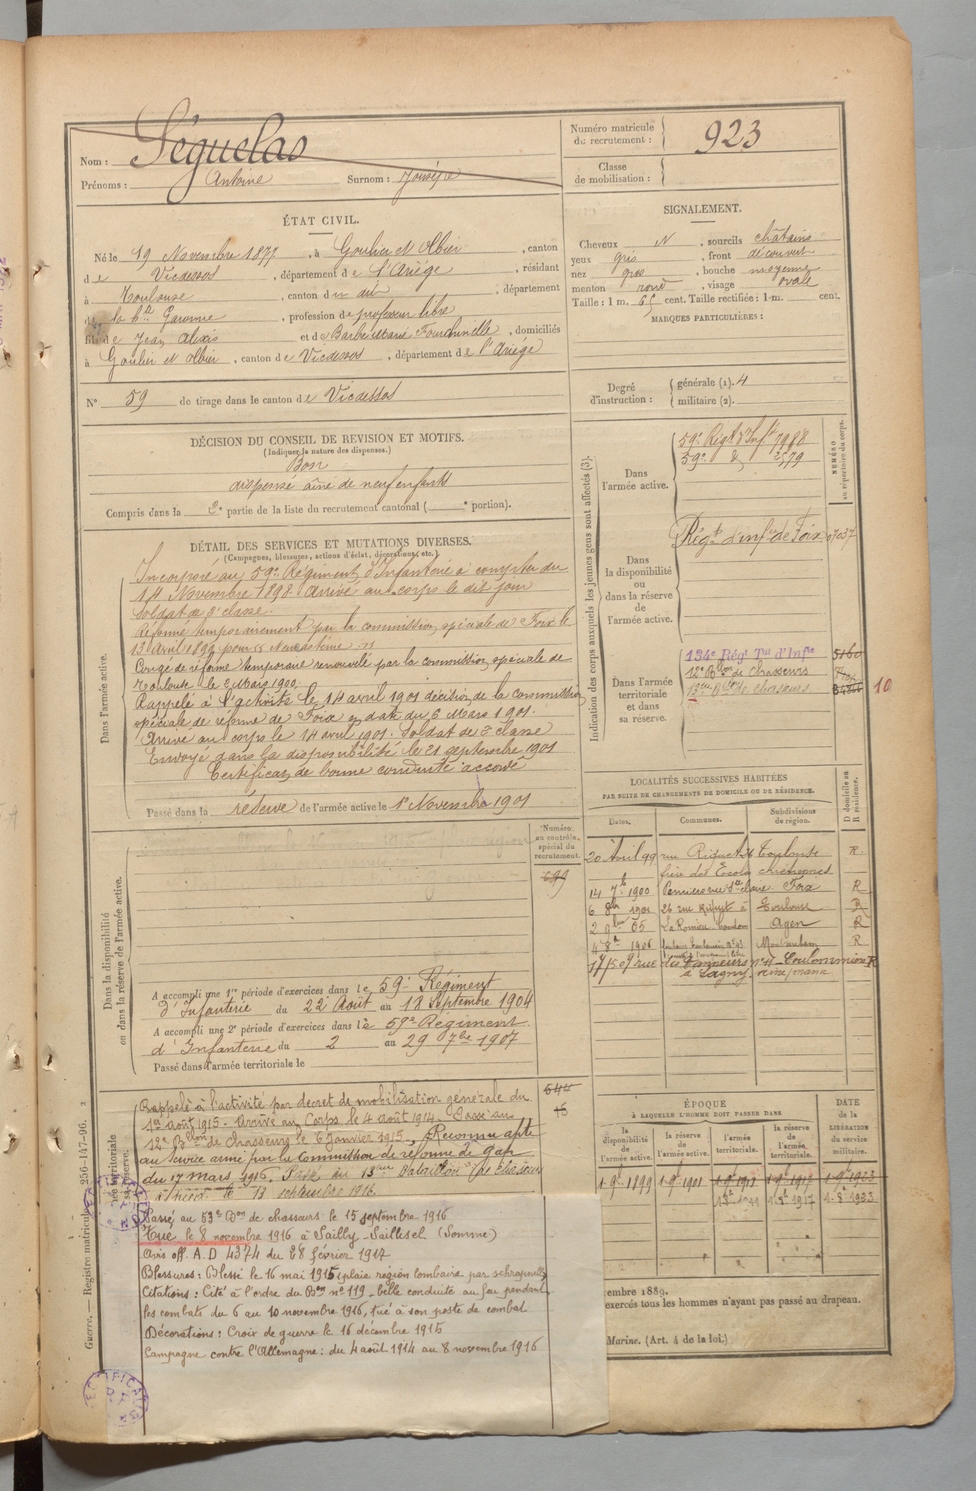 Nom : Séguelas
Prénoms : Antoine Surnom : Joseph
Numéro matricule du recrutement : 923
Classe de mobilisation :
ÉTAT CIVIL.
Né le 19 Novembre 1877, à Goulier et Olbier, canton
de Vicdessos, département de l'Ariège, résidant
à Toulouse, canton du dit, département
de la Hte Garonne, profession de professeur libre
fils de Jean Alexis et de Barbe Marie Fourchinelle, domiciliés
à Goulier et Olbier, canton de Vicdessos, département de l'Ariège
N° 59 de tirage dans le canton de Vicdessos
SIGNALEMENT.
Cheveux N, sourcils châtains
yeux gris, front découvert
nez gros, bouche moyenne
menton rond, visage ovale
Taille : 1 m. 65 cent. Taille rectifiée : 1 m. cent.
MARQUES PARTICULIÈRES :
Degré d'instruction : générale (1). 4
militaire (2).
DÉCISION DU CONSEIL DE REVISION ET MOTIFS.
(Indiquer la nature des dispenses.)
Bon
dispensé aîné de neuf enfants
Compris dans la 2e partie de la liste du recrutement cantonal ( e portion).
DÉTAIL DES SERVICES ET MUTATIONS DIVERSES.
(Campagnes, blessures, actions d'éclat, décorations, etc.)
Dans l'armée active.
Incorporé au 59e Régiment d'Infanterie à compter du
14 Novembre 1898. Arrivé au corps le dit jour
soldat de 2e classe.
Réformé temporairement par la commission spéciale de Foix le
13 avril 1899 pour
Congé de réforme temporaire renouvelé par la commission spéciale de
Toulouse le 2 Mars 1900
Rappelé à l'activité le 14 avril 1901 décision de la commission
spéciale de réforme de Foix en date du 6 Mars 1901.
Arrivé au corps le 14 avril 1901. Soldat de 2e classe
Envoyé dans la disponibilité le 21 septembre 1901
Certificat de bonne conduite accordé
Passé dans la réserve de l'armée active le 1er Novembre 1901
Indication des corps auxquels les jeunes gens sont affectés (3).
NUMÉRO au répertoire du corps.
Dans l'armée active.
59e Régt d'Inft 7988
59e d° 2579
Dans la disponibilité ou dans la réserve de l'armée active.
Régt d'infie de Foix 07037
Dans l'armée territoriale et dans sa réserve.
134e Régt Tal d'Infie 5160
12e Bon de chasseurs
13eme Bon de chasseurs
10
LOCALITÉS SUCCESSIVES HABITÉES
PAR SUITE DE CHANGEMENTS DE DOMICILE OU DE RÉSIDENCE.
Dates. Communes. Subdivisions de région. D domicile ou R résidence.
20 Avril 99 rue Riquet 26 Toulouse R
frère des Ecoles chrétiennes
14 7bre 1900 Pamiers rue Ste Claire Foix R
6 8bre 1901 26 rue Riquet à Toulouse R
2 9bre 05 La Romieu Agen R
4 8bre 1906 Montauban R
rue des Tanneurs n° 41 Coulommiers R
à Lagny Seine Marne
Numéro au contrôle spécial du recrutement.
Dans la disponibilité ou dans la réserve de l'armée active.
A accompli une 1re période d'exercices dans le 59e Régiment
d'Infanterie du 22 Août au 18 Septembre 1904
A accompli une 2e période d'exercices dans le 59e Régiment
d'Infanterie du 2 au 29 7bre 1907
Passé dans l'armée territoriale le
544
15
Rappelé à l'activité par décret de mobilisation générale du
1er août 1915. Arrivé au Corps le 4 août 1914. Passé au
12e Bataillon de chasseurs le 6 janvier 1915. Reconnu apte
au service armé par la Commission de réforme de Gap
du 17 mars 1916. Passé au 13eme Bataillon de chasseurs
à pied le 13 septembre 1916.
Passé au 53e Bon de chasseurs le 15 septembre 1916
Tué le 8 novembre 1916 à Sailly-Saillisel (Somme)
Avis off. A.D 4374 du 28 février 1917
Blessures : Blessé le 16 mai 1915 (plaie région lombaire par schrapnell)
Citations : Cité à l'ordre du Bon n° 119 - belle conduite au feu pendant
les combats du 6 au 10 novembre 1916, tué à son poste de combat
Décorations : Croix de guerre le 16 décembre 1915
Campagne contre l'Allemagne : du 4 août 1914 au 8 novembre 1916
ÉPOQUE
À LAQUELLE L'HOMME DOIT PASSER DANS
la disponibilité de l'armée active. la réserve de l'armée active. l'armée territoriale. la réserve de l'armée territoriale. DATE de la LIBÉRATION du service militaire.
1 9bre 1899 1 9bre 1901
embre 1889.
exercés tous les hommes n'ayant pas passé au drapeau.
Marine. (Art. 4 de la loi.)
Guerre. — Registre matricule. 256-147-96.